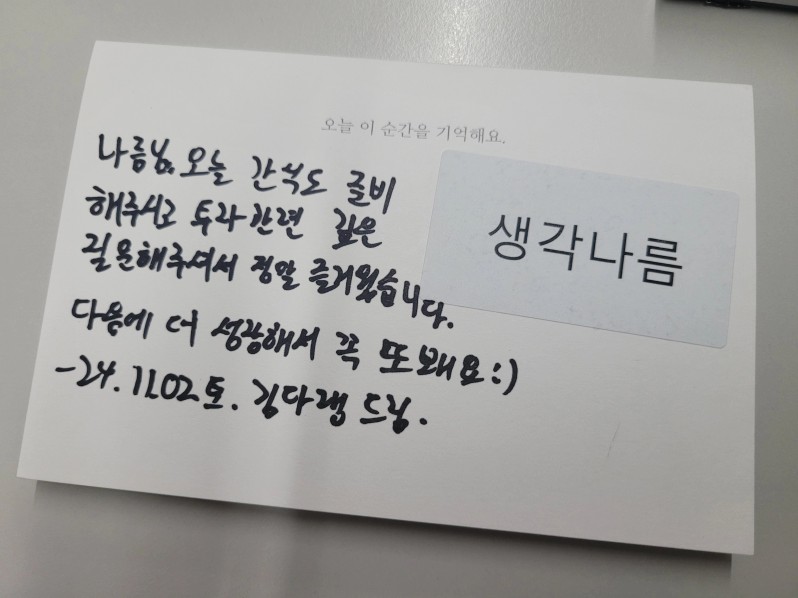 오늘 이 순간을 기억해요.
나름님. 오늘 간식도 준비
해주시고 투자 관련 깊은
질문해주셔서 정말 즐거웠습니다.
다음에 더 성장해서 꼭 또봬요:)
-24.11.02.토. 김다랩 드림.
생각나름